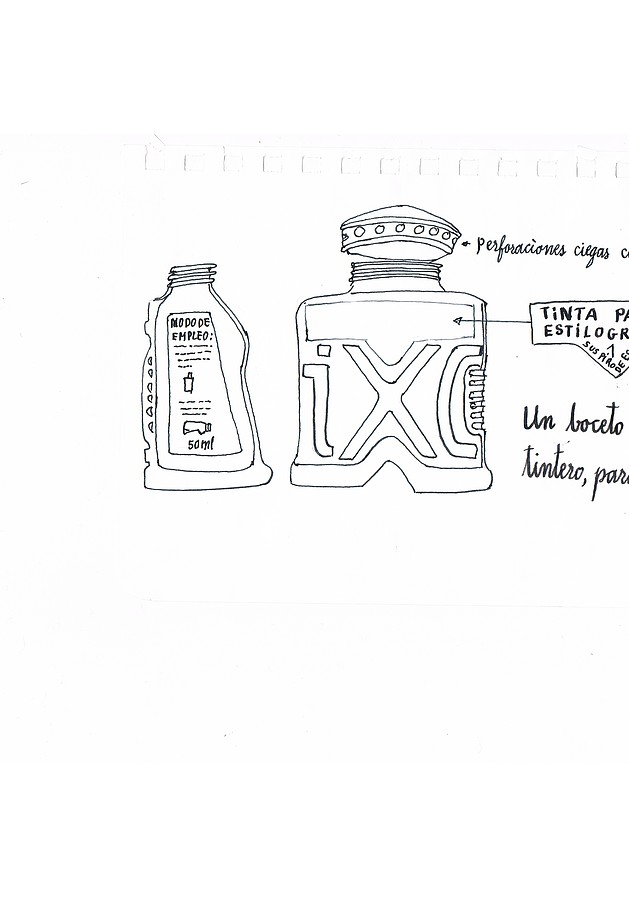 Perforaciones ciegas c
MODO DE
EMPLEO:
50ml
TiNTA PA
ESTiLOGR
iXC
Un boceto
tintero, para